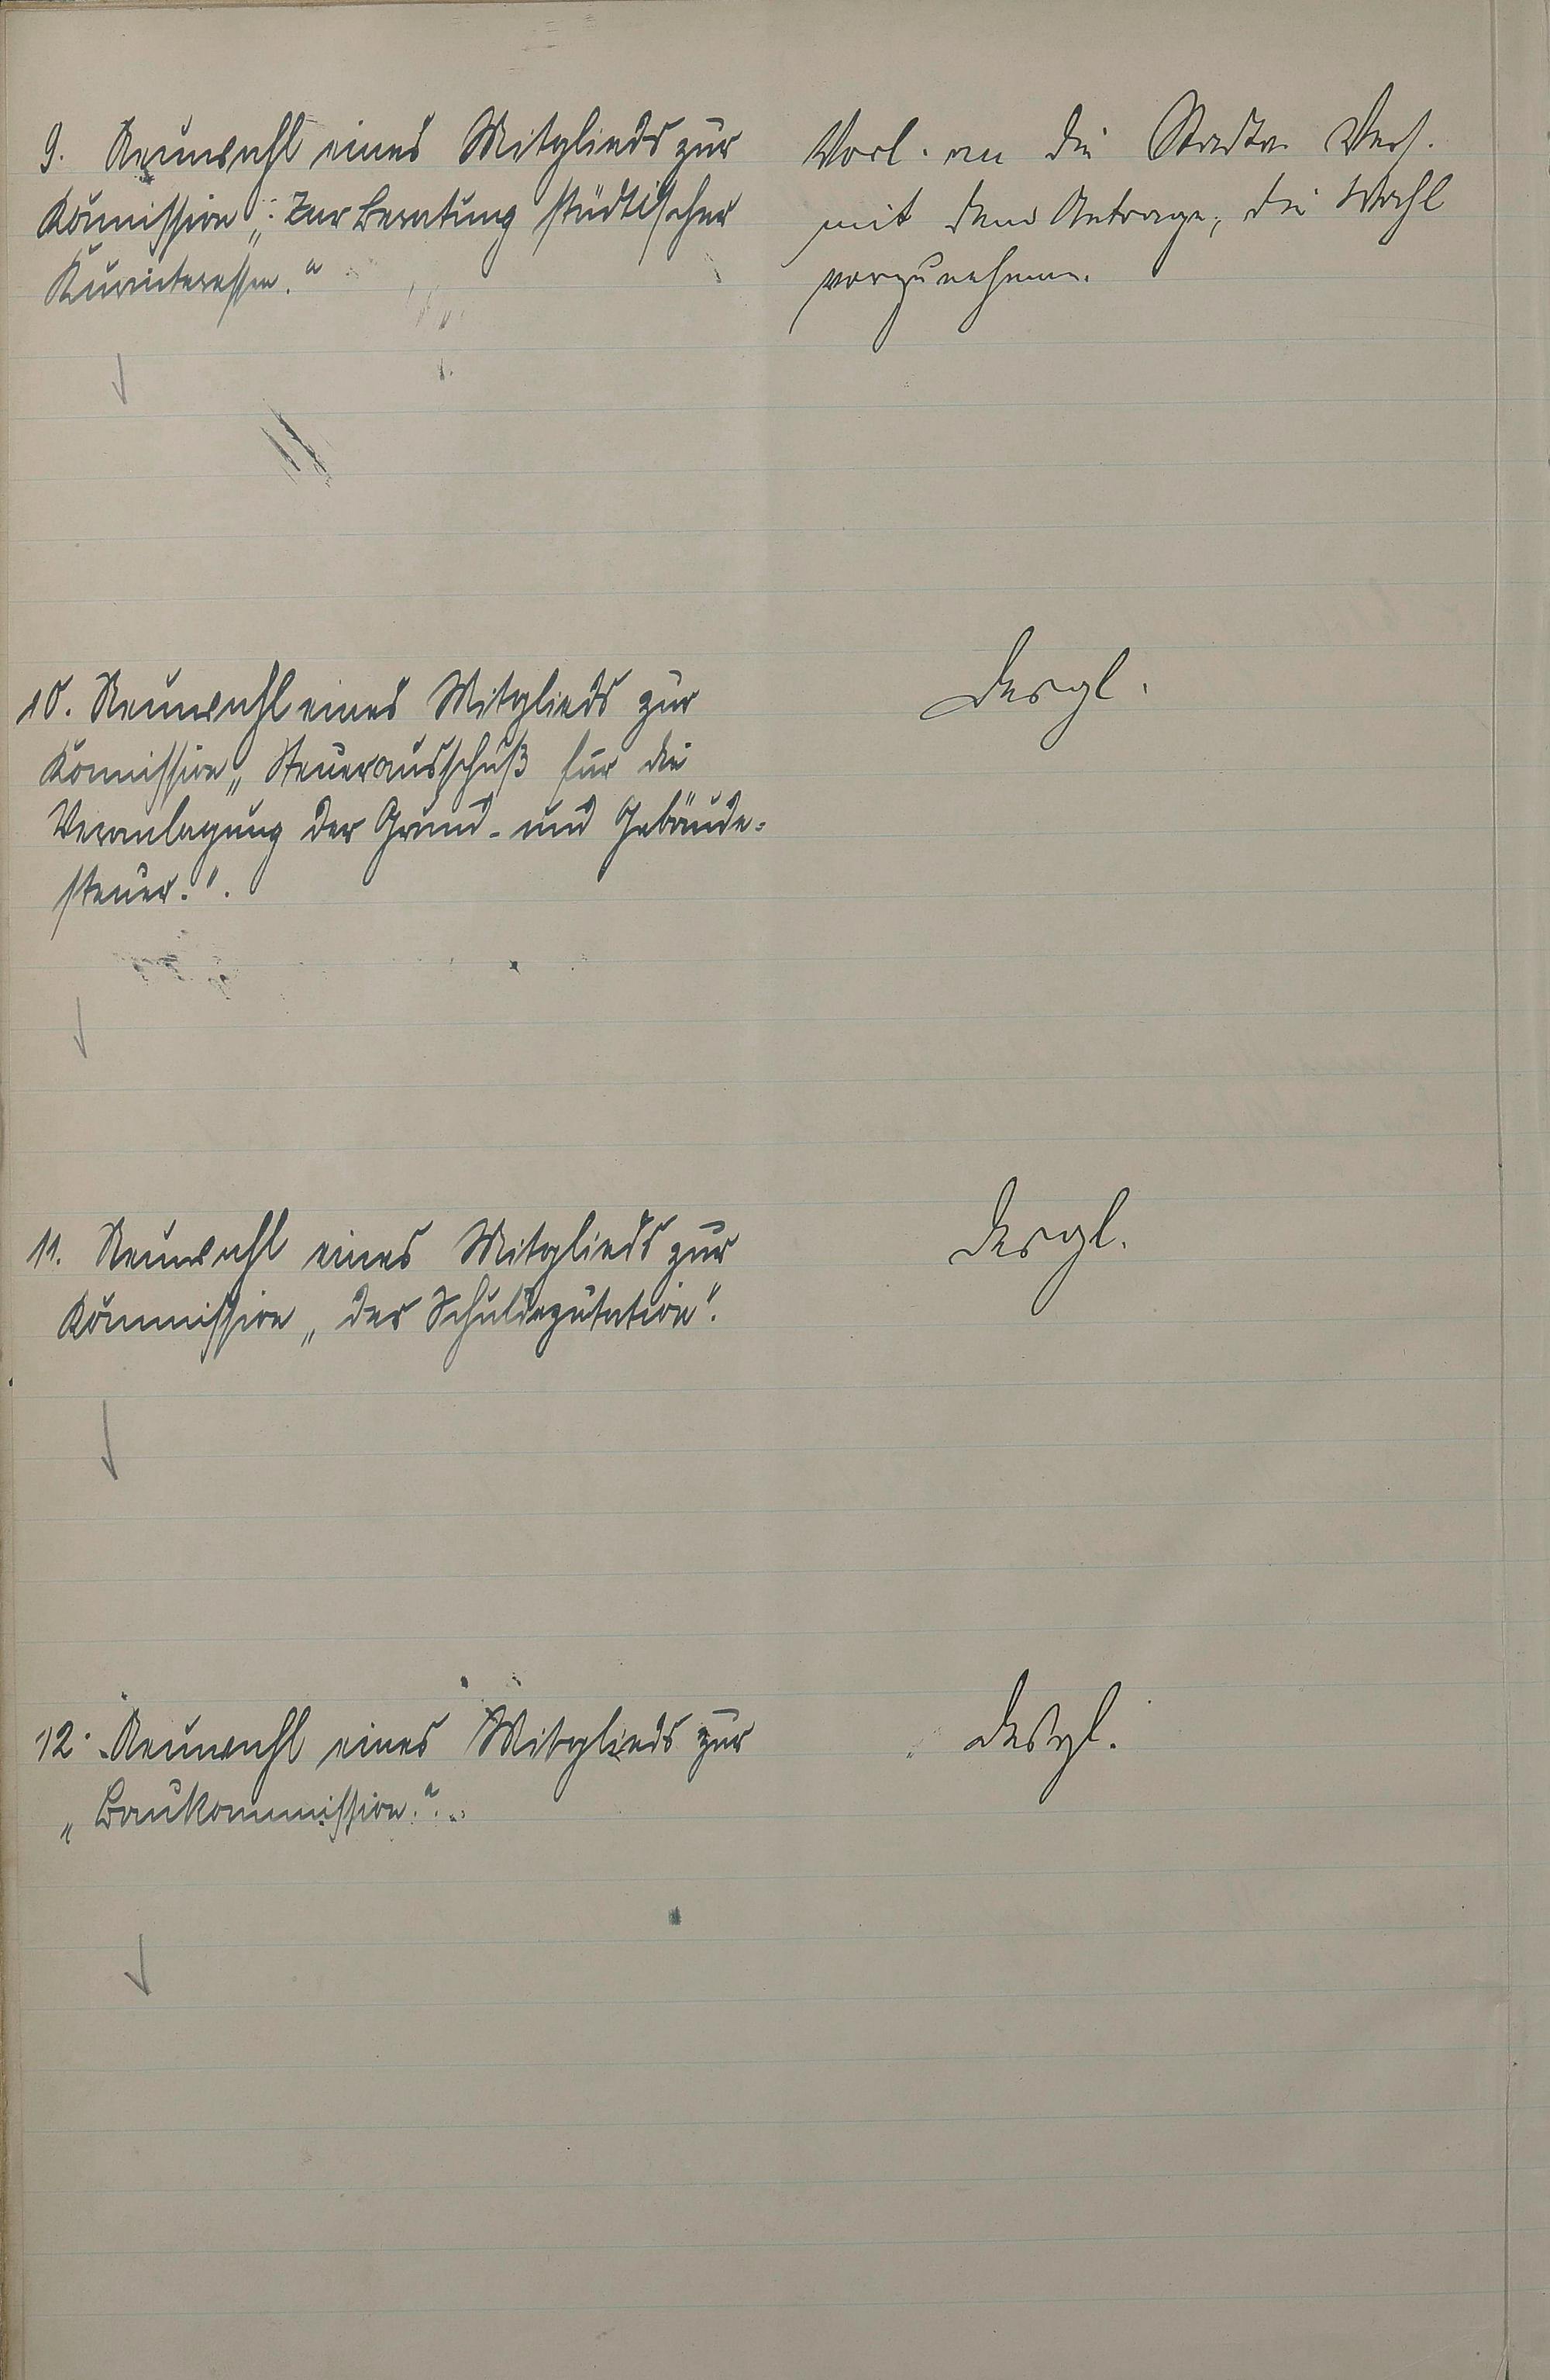 9. Neuwahl eines Mitglieds zur
Kom̄ission „: Zur Beratung städtischer
Kurinteressen.“
Vorl. an die Stadtv. Vers.
mit dem Antrage, die Wahl
vorzunehmen.
10. Neuwahl eines Mitglieds zur
Kom̄ission „Steuerausschuß für die
Veranlagung der Grund- und Gebäude=
steuer.“.
Desgl.
11. Neuwahl eines Mitglieds zur
Kommission „der Schuldeputation“.
Desgl.
12. Neuwahl eines Mitglieds zur
„Baukommission.“.
Desgl.